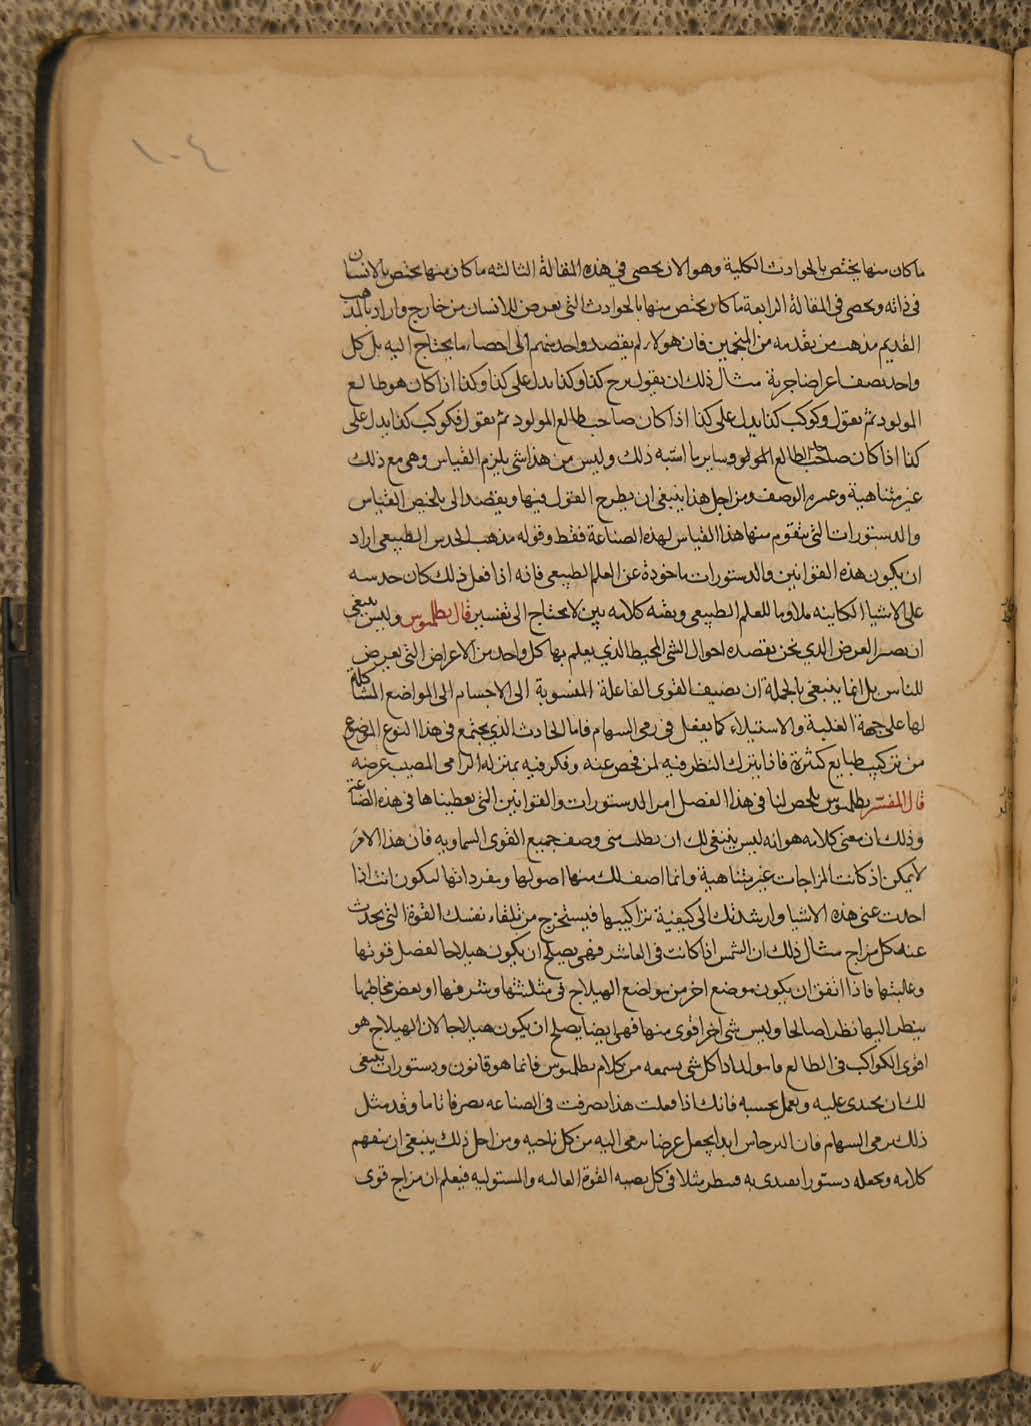 ١٠٤
ما كان منها يختص بالحوادث الكلية وهو الان يحصى في هذه المقالة الثالثه ما كان منها يختص بالانسان
في ذاته ويحصى في المقالة الرابعة ما كان يختص منها بالحوادث التى تعرض للانسان من خارج واراد بالمذهب
القديم مذهب من تقدمه من المنجمين فان هولاء لم يقصد واحد منهم الى احصاء ما يحتاج اليه بل كل
واحد يصف اعراضا جزية مثال ذلك ان يقول برج كذا وكذا يدل على كذا وكذا اذا كان هو طالع
المولود ثم يقول وكوكب كذا يدل على كذا اذا كان صاحب طالع المولود ثم يقول فكوكب كذا يدل على
كذا اذا كان صاحب الطالع المولود وساير ما اشبه ذلك وليس من هذا شى يلزم القياس وهى مع ذلك
غير متناهية وعسره الوصف ومن اجل هذا ينبغى ان يطرح القول فيها ويقصد الى تلخيص القياس
والدستورات التى يتقوم منها هذا القياس لهذه الصناعة فقط وقوله مذهب الحدس الطبيعى اراد
ان يكون هذه القوانين والدستورات ماخوذة عن العلم الطبيعى فانه اذا فعل ذلك كان حدسه
على الاشيا الكاينه ملاوما للعلم الطبيعى وبقية كلامه بين لا يحتاج الى تفسير قال بطلميوس وليس ينبغى
ان يصير الغرض الذي نحن بقصده احوال الشى المحيط الذي يعلم بها كل واحد من الاعراض التى تعرض
للناس بل انما ينبغي بالجملة ان نضيف القوى الفاعلة المنسوبة الى الاجسام الى المواضع المشاكلة
لها على جهة الغلبة والاستيلاء كما يفعل في رمى السهام فاما الحادث الذي يجتمع في هذا النوع الموضوع
من تركيب طبايع كثيرة فاذا يترك النظر فيه لمن فحص عنه وفكر فيه بمنزله الرامى المصيب غرضه
قال المفسر بطلميوس يلخص لنا في هذا الفصل امر الدستورات والقوانين التى يعطيناها في هذه الصناعة
وذلك ان معنى كلامه هو انه ليس ينبغى لك ان تطلب منى وصف جميع القوى السماويه فان هذا الامر
لا يمكن اذ كانت المزاجات غير متناهية وانما اصف لك منها اصولها ومفرداتها لتكون انت اذا
اخذت عنى هذه الاشيا وارشدتك الى كيفية تراكيبها فيستخرج من تلقاء نفسك القوة التى يحدث
عنه كل مزاج مثال ذلك ان الشمس اذا كانت في العاشر فهى يصلح ان يكون هيلاجا لفضل قوتها
وغلبتها فاذا اتفق ان يكون موضع اخر من مواضع الهيلاج في مثلثتها وشرفها او بعض مخاطها
ينظر اليها نظر اصالحا وليس شى اخر اقوى منها فهى ايضا يصلح ان يكون هيلاجا لان الهيلاج هو
اقوى الكواكب في الطالع كل شى يسمعه من كلام بطلميوس فانما هو قانون ودستور ان ينبغى
لك ان يحتدى عليه ويعمل بحسبه فانك اذا فعلت هذا تصرفت في الصناعه تصرفا تاما وقد مثل
ذلك برمى السهام فان البرجاس ابدا يجعل غرضا يرمى اليه من كل ناحيه ومن اجل ذلك ينبغى ان يتفهم
كلامه ويجعله دستورا يقتدى به فينظر مثلا في كل نصبه القوة الغالبه والمستوليه فيعلم ان مزاج قوى